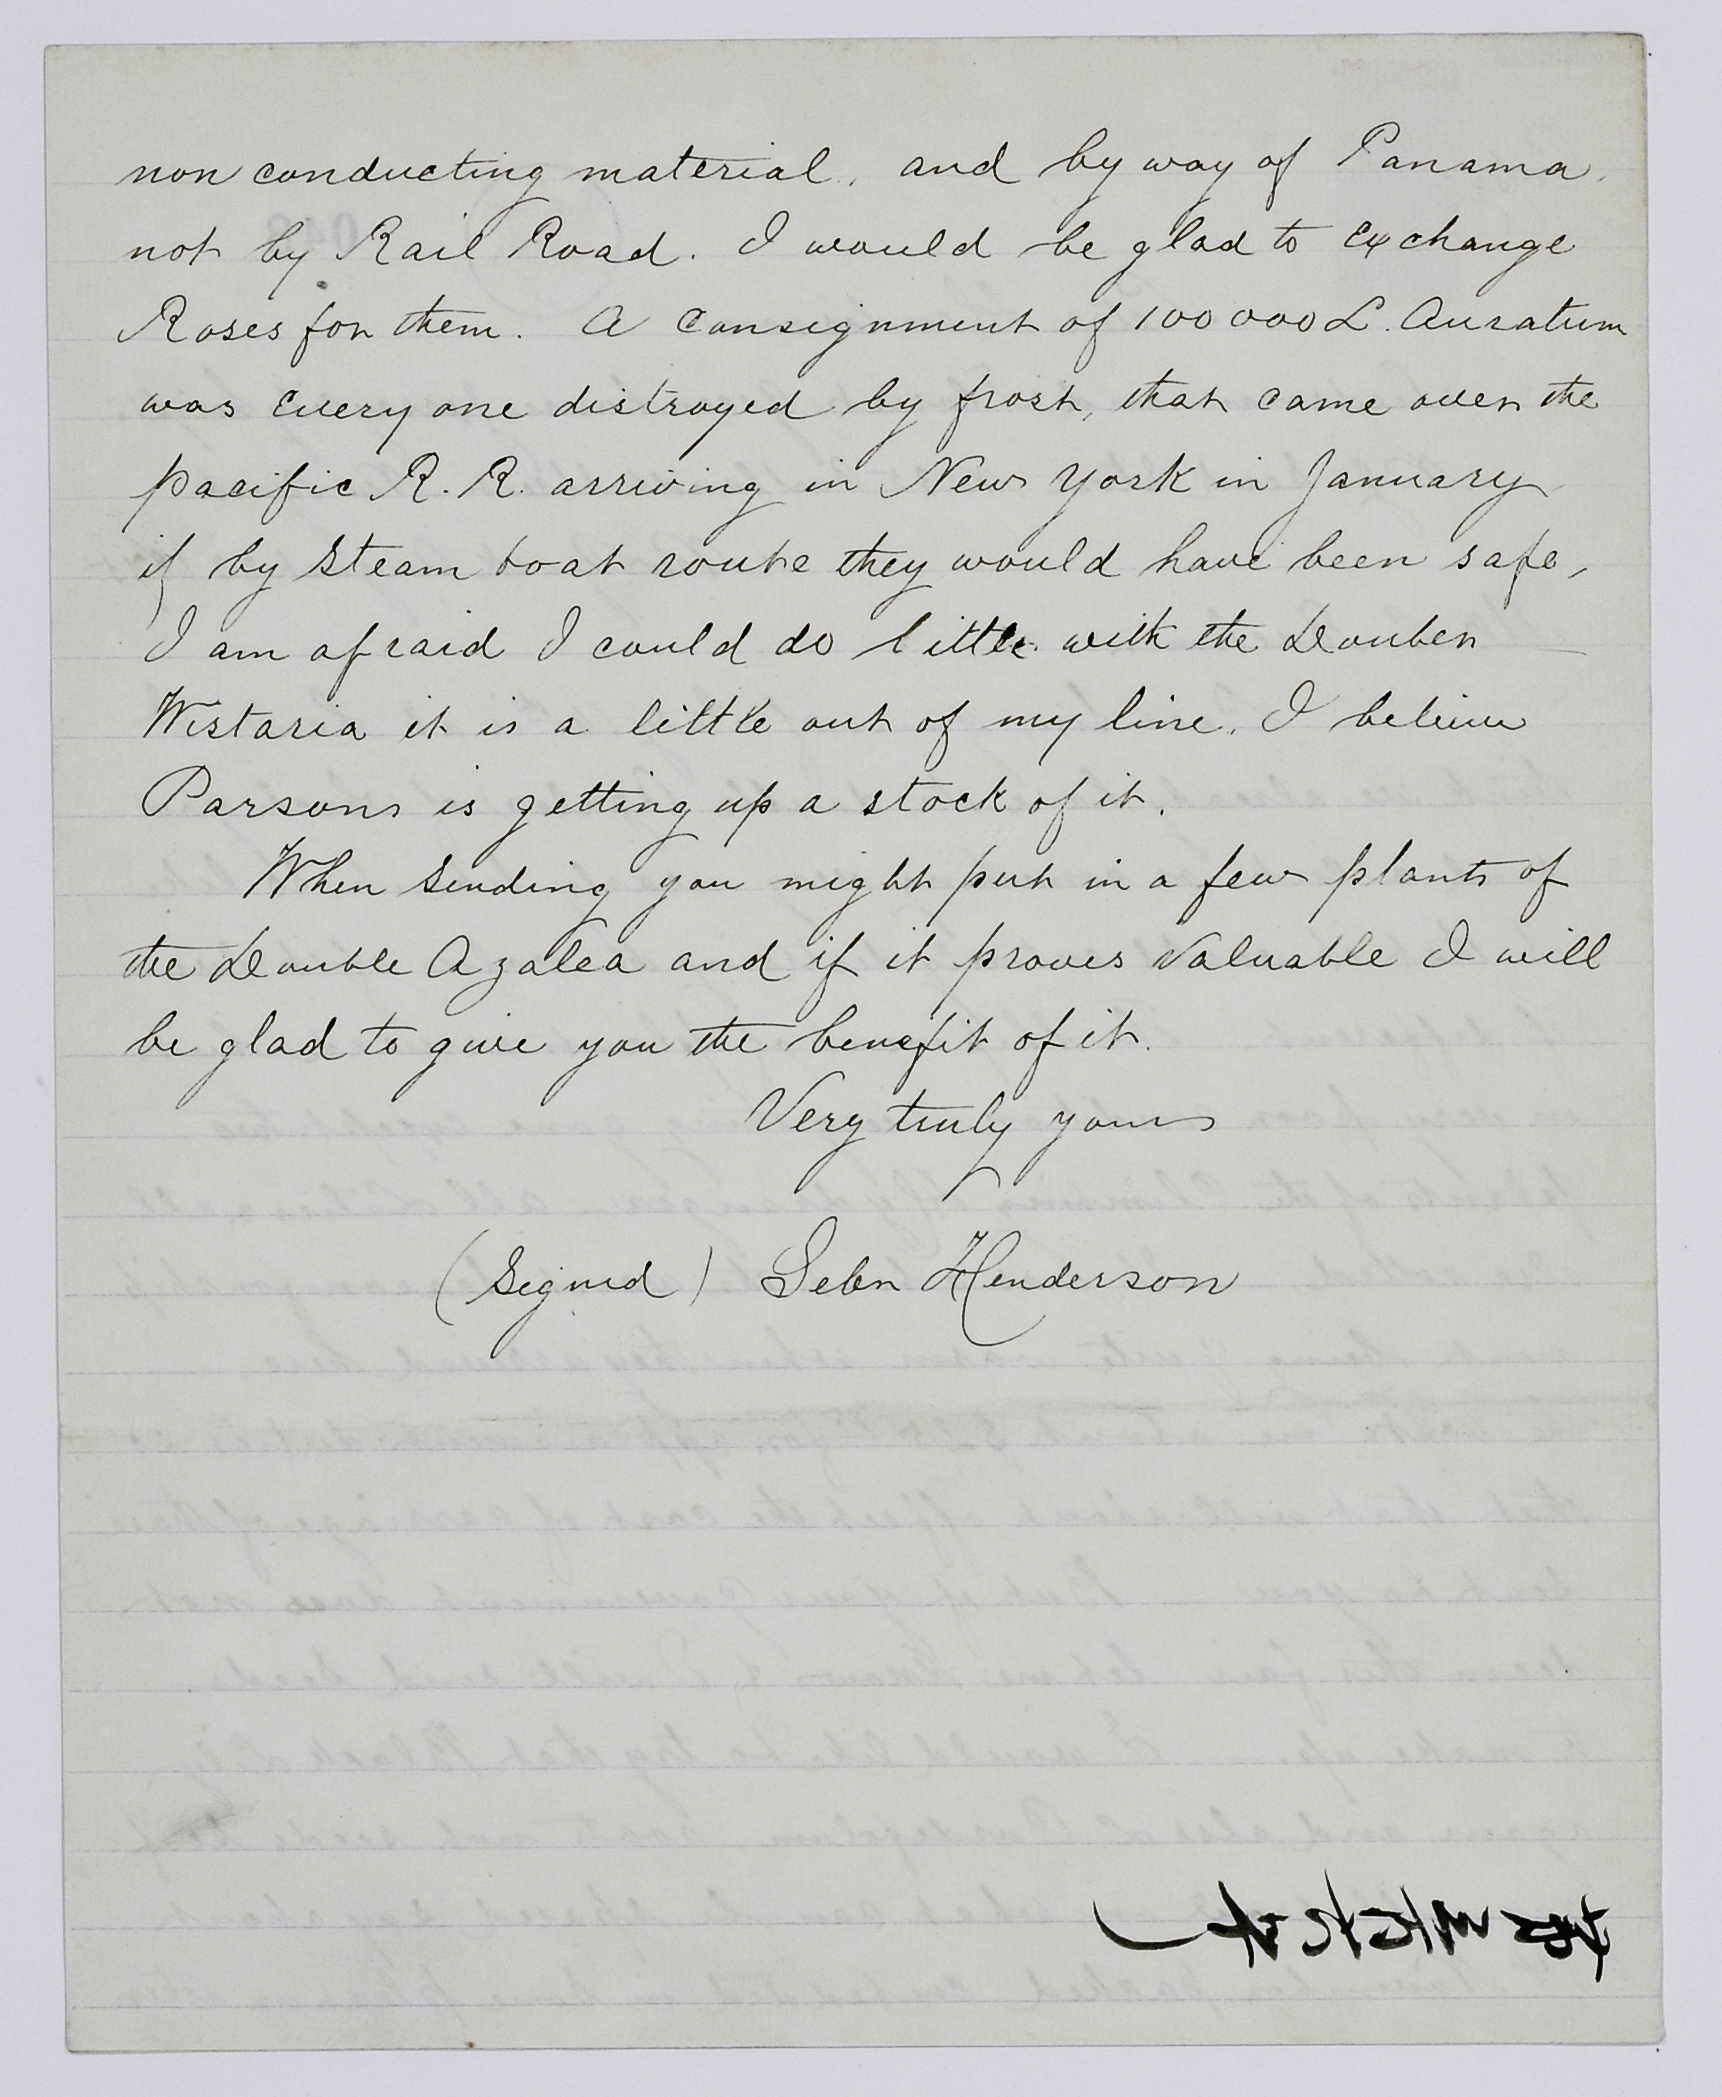 non conducting material, and by way of Panama,
not by Rail Road. I would be glad to exchange
Roses for them. A consignment of 100 000 L. Auratum
was every one distroyed by frost, that came over the
pacific R. R. arriving in New York in January
if by steam boat route they would have been safe,
I am afraid I could do little with the Douben
Wistaria it is a little out of my line. I believe
Parsons is getting up a stock of it.
When sending you might put in a few plants of
the Double Azalea and if it proves valuable I will
be glad to give you the benefit of it.
Very truly yours
(Signed) Henderson